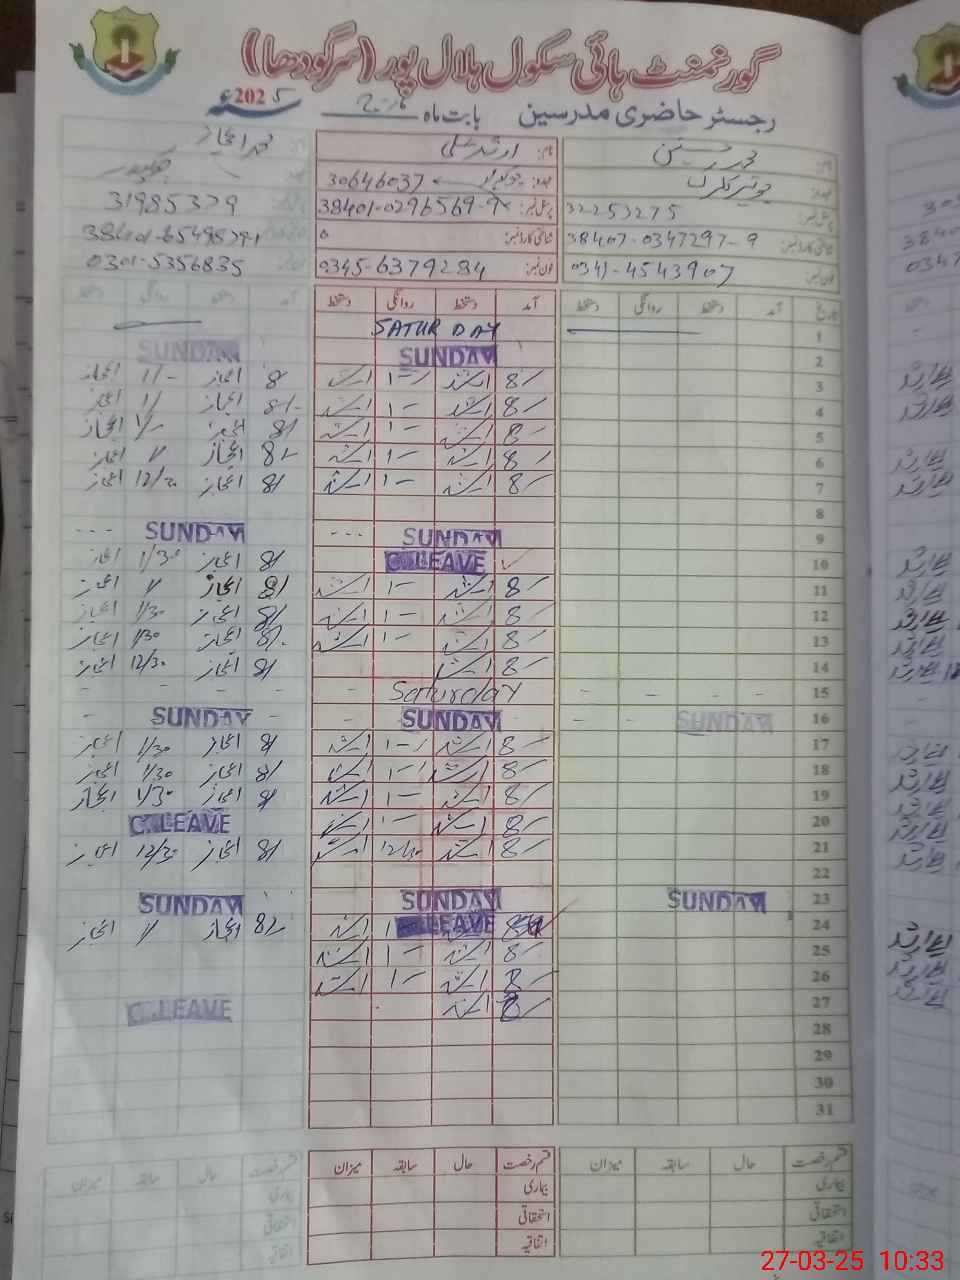 گورنمنٹ ہائی سکول ہلال پور (سرگودھا)
رجسٹر حاضری مدرسین بابت ماہ مارچ 2025ء
نام: محمد حسنین
عہدہ: جونیئر کلرک
پرسنل نمبر: 32253275
شناختی کارڈ نمبر: 38407-0347297-9
فون نمبر: 0341-4543907
نام: ارشد علی
عہدہ: 30646037
پرسنل نمبر: 38401-0296569-9
شناختی کارڈ نمبر:
فون نمبر: 0345-6379284
محمد اعجاز
31985379
38401-6549529-1
0301-5356835
تاریخ آمد دستخط روانگی دستخط آمد دستخط روانگی دستخط آمد دستخط روانگی دستخط
1 SATURDAY
2 SUNDAY SUNDAY
3 8/- ارشد 1-/ ارشد 8/ اعجاز 1/- اعجاز
4 8/- ارشد 1- ارشد 8/- اعجاز 1/ اعجاز
5 8/- ارشد 1- ارشد 8/ اعجاز 1/- اعجاز
6 8/- ارشد 1- ارشد 8/- اعجاز 1/ اعجاز
7 8/- ارشد 1- ارشد 8/ اعجاز 12/30 اعجاز
8
9 SUNDAY --- SUNDAY ---
10 C.LEAVE 8/ اعجاز 1/30 اعجاز
11 8/- ارشد 1- ارشد 8/ اعجاز 1/ اعجاز
12 8/- ارشد 1- ارشد 8/ اعجاز 1/30 اعجاز
13 8/- ارشد 1- ارشد 8/- اعجاز 1/30 اعجاز
14 8/- ارشد 8/ اعجاز 12/30 اعجاز
15 - - - - Saturday - - - - -
16 SUNDAY - - SUNDAY - - SUNDAY -
17 8/- ارشد 1-/ ارشد 8/ اعجاز 1/30 اعجاز
18 8/- ارشد 1-/ ارشد 8/ اعجاز 1/30 اعجاز
19 8/- ارشد 1- ارشد 8/ اعجاز 1/30 اعجاز
20 8/- ارشد 1- ارشد C.LEAVE
21 8/- ارشد ارشد 8/ اعجاز 12/30 اعجاز
22
23 SUNDAY SUNDAY SUNDAY
24 C.LEAVE ارشد 8/ اعجاز 1/ اعجاز
25 8/- ارشد 1- ارشد
26 8/- ارشد 1- ارشد
27 8/- ارشد C.LEAVE
28
29
30
31
قسم رخصت حال سابقہ میزان قسم رخصت حال سابقہ میزان قسم رخصت حال سابقہ میزان
بیماری بیماری بیماری
استحقاقی استحقاقی استحقاقی
اتفاقیہ اتفاقیہ اتفاقیہ
27-03-25 10:33